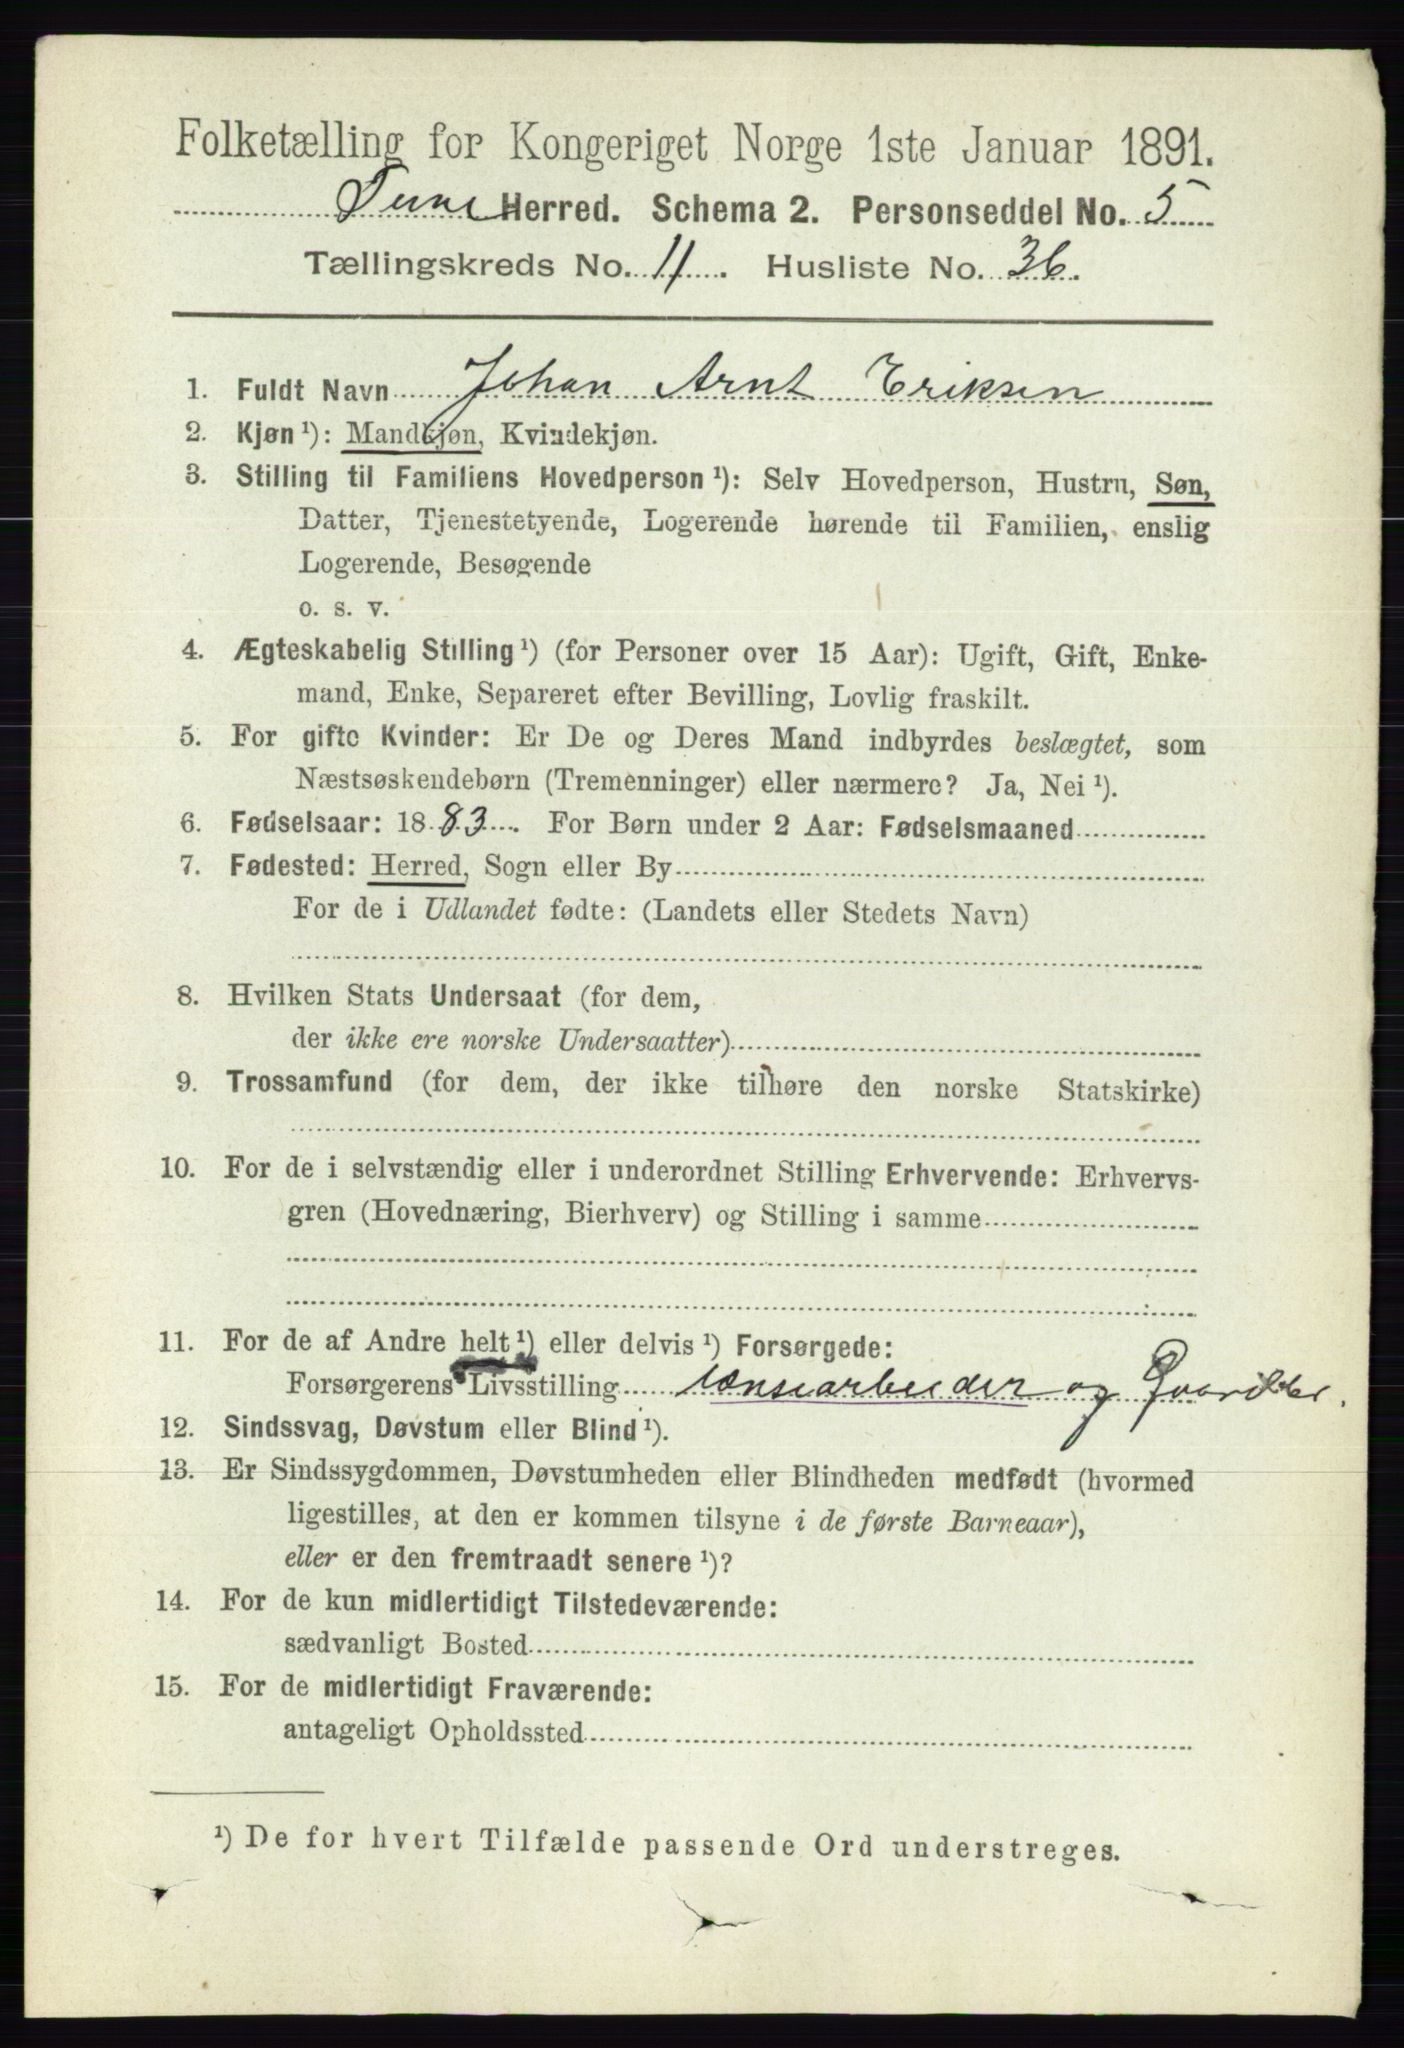 Folketælling for Kongeriget Norge 1ste Januar 1891.
Tune Herred. Schema 2. Personseddel No. 5
Tællingskreds No. 11. Husliste No. 36.
1. Fuldt Navn Johan Arnt Eriksen
2. Kjøn ¹): Mandkjøn, Kvindekjøn.
3. Stilling til Familiens Hovedperson ¹): Selv Hovedperson, Hustru, Søn,
Datter, Tjenestetyende, Logerende hørende til Familien, enslig
Logerende, Besøgende
o. s. v.
4. Ægteskabelig Stilling ¹) (for Personer over 15 Aar): Ugift, Gift, Enke-
mand, Enke, Separeret efter Bevilling, Lovlig fraskilt.
5. For gifte Kvinder: Er De og Deres Mand indbyrdes beslægtet, som
Næstsøskendebørn (Tremenninger) eller nærmere? Ja, Nei ¹).
6. Fødselsaar: 1883. For Børn under 2 Aar: Fødselsmaaned
7. Fødested: Herred, Sogn eller By
For de i Udlandet fødte: (Landets eller Stedets Navn)
8. Hvilken Stats Undersaat (for dem,
der ikke ere norske Undersaatter)
9. Trossamfund (for dem, der ikke tilhøre den norske Statskirke)
10. For de i selvstændig eller i underordnet Stilling Erhvervende: Erhvervs-
gren (Hovednæring, Bierhverv) og Stilling i samme
11. For de af Andre helt ¹) eller delvis ¹) Forsørgede:
Forsørgerens Livsstilling lænsearbeider og
12. Sindssvag, Døvstum eller Blind ¹).
13. Er Sindssygdommen, Døvstumheden eller Blindheden medfødt (hvormed
ligestilles, at den er kommen tilsyne i de første Barneaar),
eller er den fremtraadt senere ¹)?
14. For de kun midlertidigt Tilstedeværende:
sædvanligt Bosted
15. For de midlertidigt Fraværende:
antageligt Opholdssted
¹) De for hvert Tilfælde passende Ord understreges.